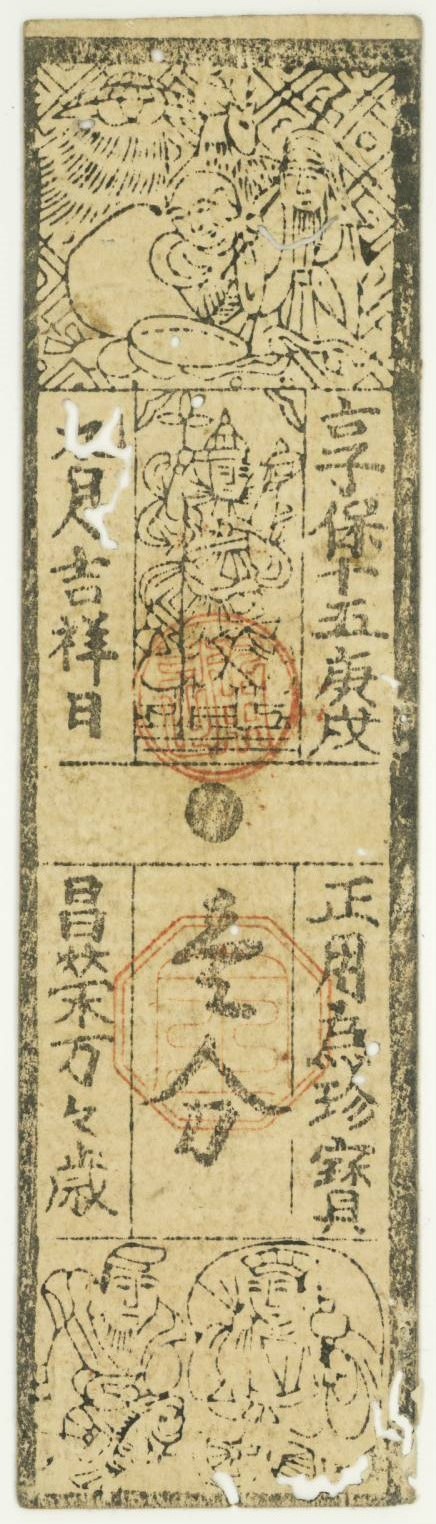 享保十五庚戌
七月吉祥日
正用為珍寳
壱分
昌栄万々歳